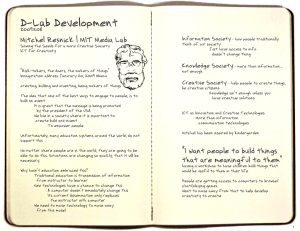 D-Lab Development
Mitchel Resnick | MIT Media Lab
Sowing the Seeds for a more Creative Society
ICT for Creativity
"Risk-takers, the doers, the makers of things"
Inauguration address January 20,
creating, building and inventing, being makers of things
The idea that one of the best ways to engage to people, is to
build an object
It is great that this message is being promoted
by the president of the USA
He live in a country where it is important to
create, build and invent
To empower people
Unfortunately many education systems around the world, do not
support this
No matter where people are in the world, they are going to be
able to do this. Situations are changing so quickly, that it will be
necessary
Why hasn't education embraced this?
Traditional education is transmission of information
from instructor to learner
New technologies have a chance to change this
& computer doesn't immediately change this
It's current documentation only replaces
the instructor with computer
We need to move technology to move away
from this model
Information Society - how people traditionally
think of our society
Just have access to info
doesn't change thing
Knowledge Society - more than information...
not enough
Creative Society - help people to create things,
be creative citizens
Knowledge isn't enough unless you
have creative solutions
ICT as Innovation and Creative Technologies
more than information
communication technologies
Mitchel has been inspired by Kindergarden
"I want people to build things
that are meaningful to them"
having a workshop to have children built things that
would be useful to them in their life
People are getting access to computers to browse/
chat/playing games
Want to move away from that to help develop
creativity to create